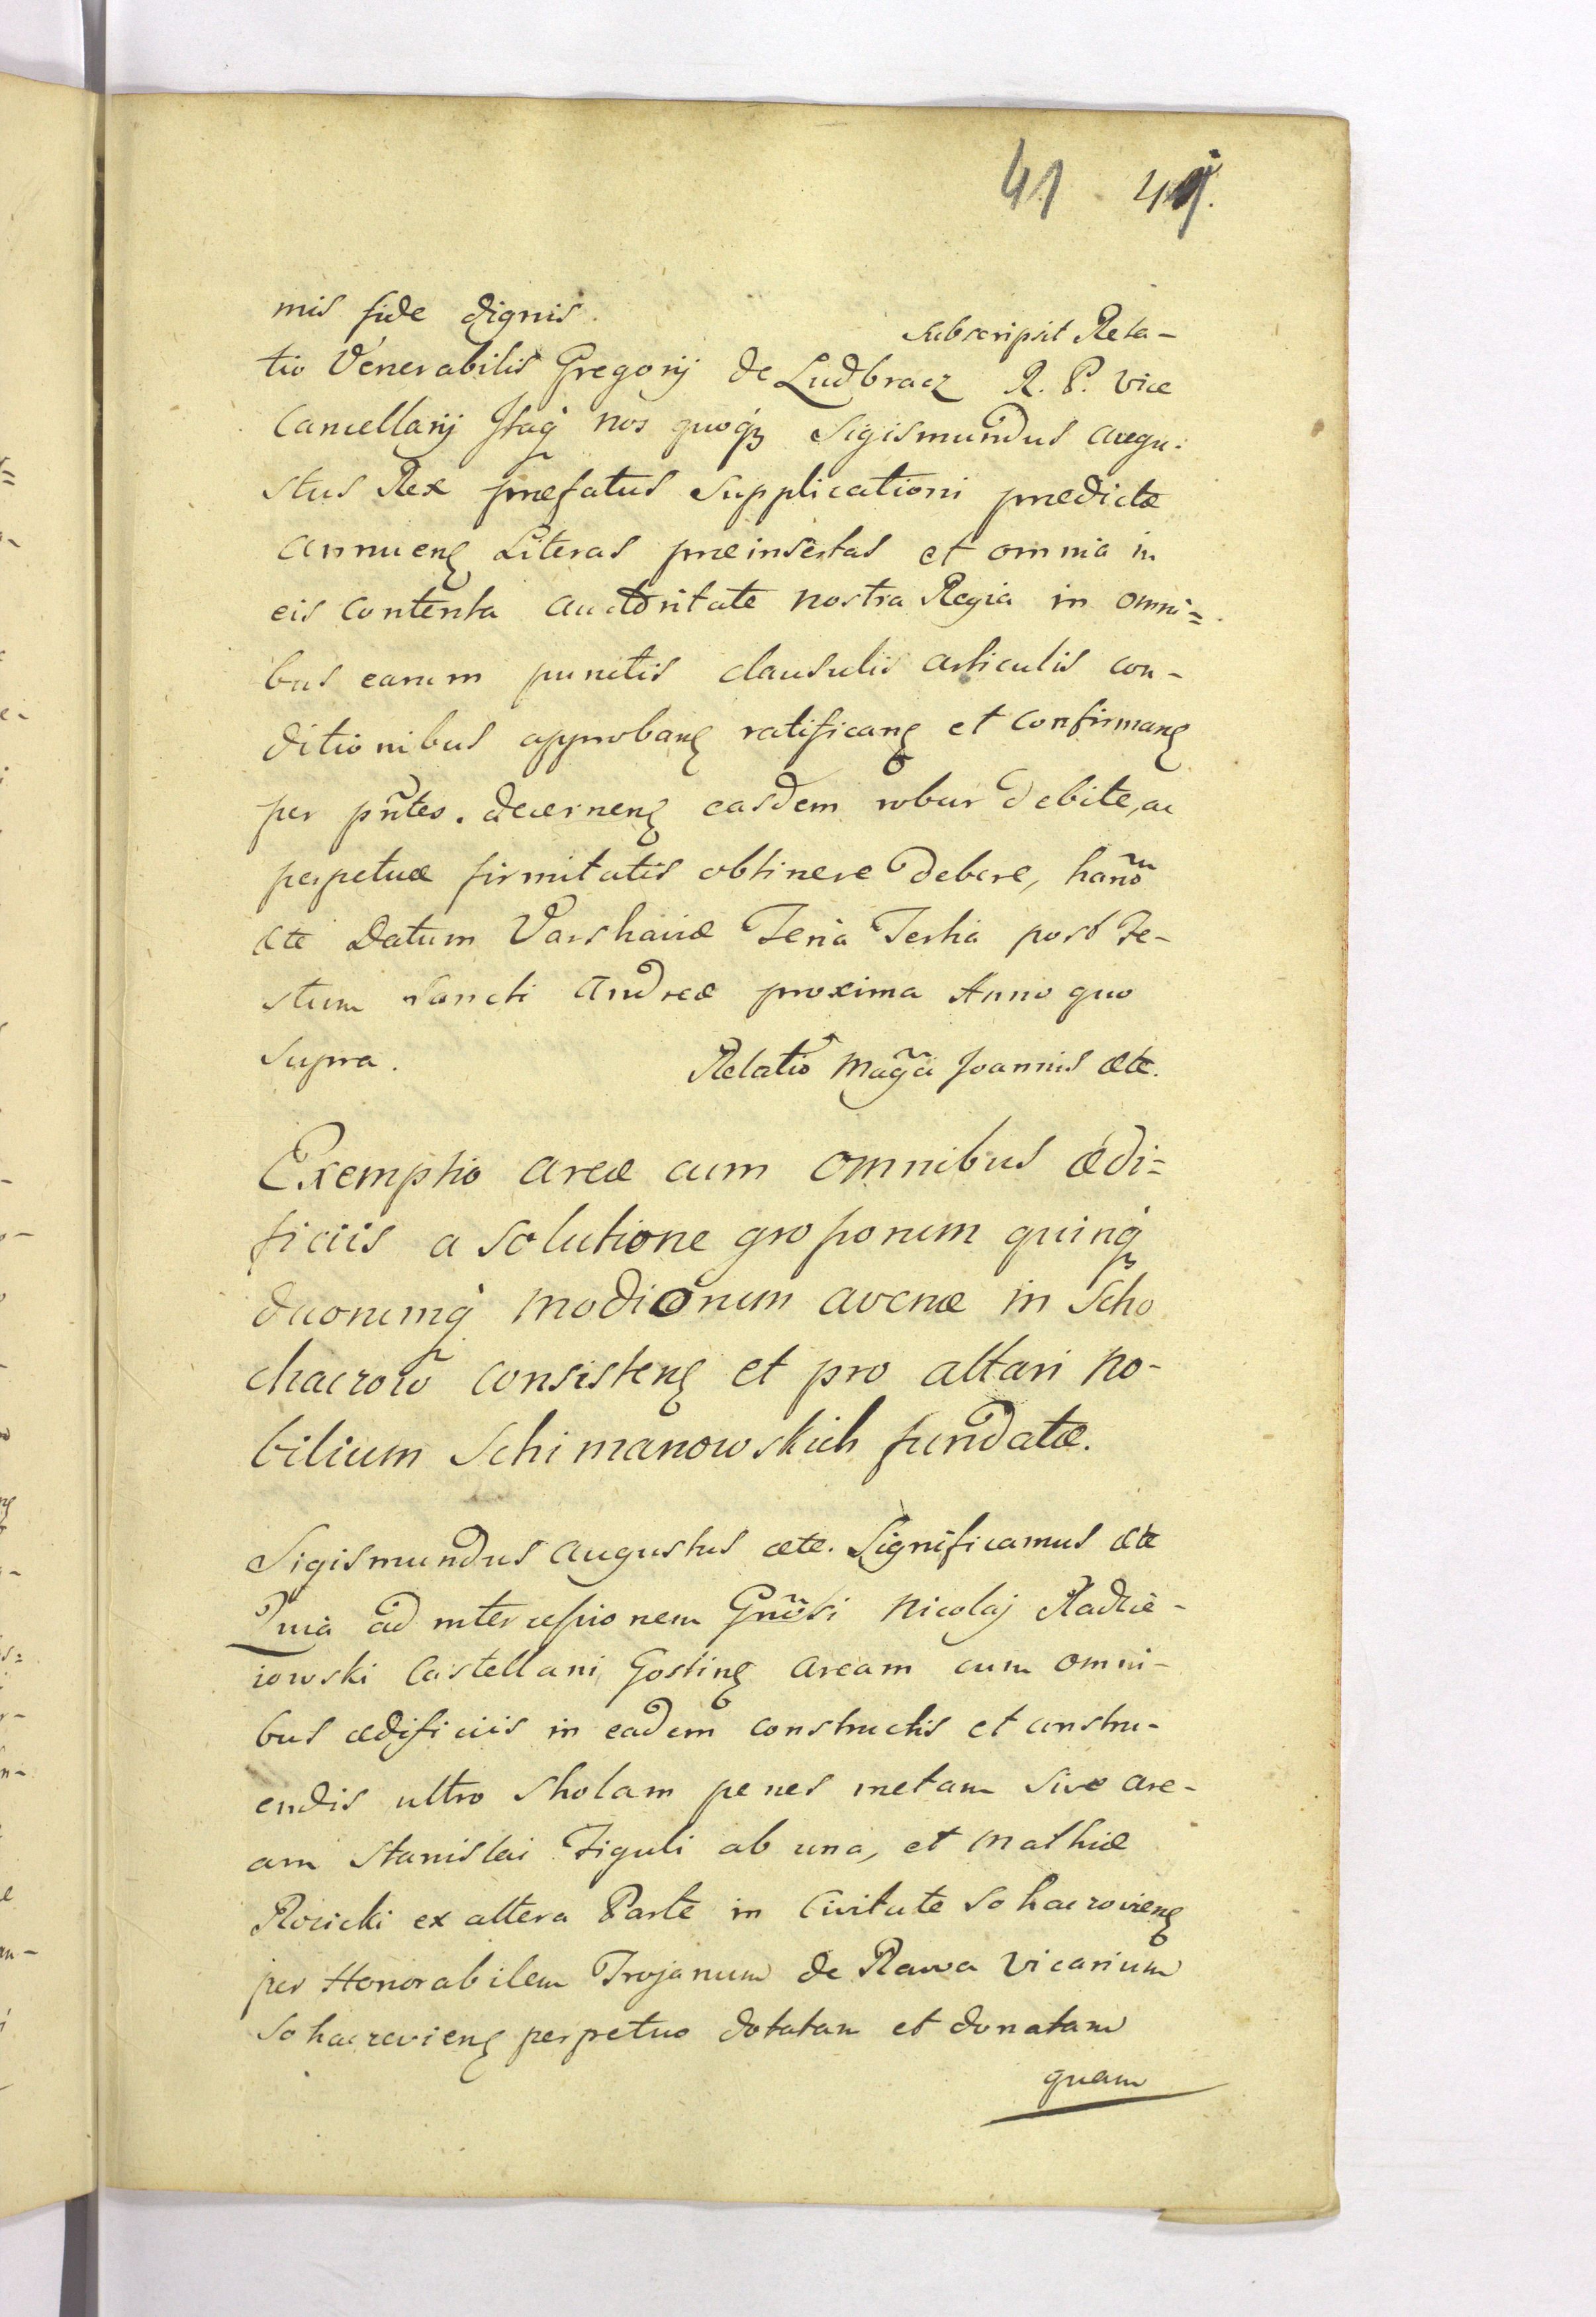 41 41.
mis fide dignis. Subscripsit Rela-
tio Venerabilis Gregorij de Ludbracz R. P. Vice
Cancellarij Itaq nos quoqȝ Sigismundus Augu:
stus Rex præfatus Supplicationi prædictæ
annuenȝ Literas præinsertas et omnia in
eis contenta auctoritate nostra Regia in omni=
bus earum punctis clausulis articulis con-
ditionibus approbanȝ ratificanȝ et confirmanȝ
per pñtes. decernenȝ easdem robur debite, ac
perpetuæ firmitatis obtinere debere, harũ
ætc Datum Varshaviæ Feria Tertia post Fe-
stum Sancti Andreæ proxima Anno quo
Supra. Relatio Magci Joannis ætc.
Exemptio areæ cum omnibus ædi=
ficiis a solutione grossorum quinqȝ
duorumq modiorum avenæ in Scho
chaczow consistenȝ et pro altari No-
bilium Schimanowskich fundatæ.
Sigismundus Augustus ætc. Significamus ætc
Quia ad intercessionem Gnõsi Nicolaj Radzie-
iowski Castellani Gostinȝ aream cum omni-
bus ædificiis in eadem constructis et constru-
endis ultro Sholam penes metam sive are-
am Stanislai Figuli ab una, et Mathiæ
Rocicki ex altera Parte in Civitate Sohaczovienȝ
per Honorabilem Trojanum de Rawa Vicarium
Sohaczevienȝ perpetuo dotatam et donatam
quam